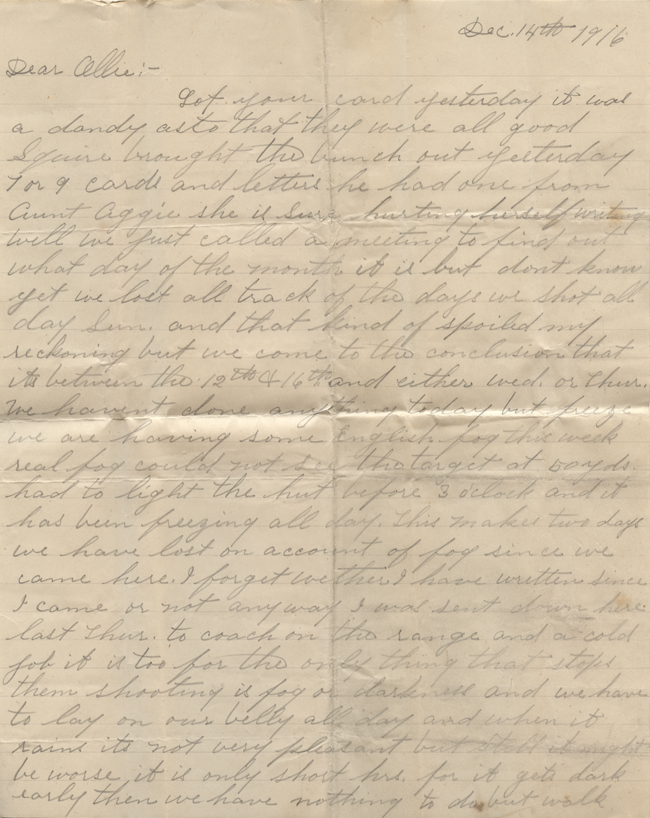 Dec. 14th 1916
Dear Ollie:-
Got your card yesterday it was
a dandy as to that they were all good
Squire brought the bunch out yesterday
7 or 9 cards and letters he had one from
Aunt Aggie she is sure hurting herself writing
well we just called a meeting to find out
what day of the month it is but dont know
yet we lost all track of the days we shot all
day Sun. and that kind of spoiled my
reckoning but we come to the conclusion that
its between the 12th & 16th and either wed. or Thur.
We havent done anything today but freeze
we are having some English fog this week
real fog could not see the target at 50 yds.
had to light the hut before 3 oclock and it
has been freezing all day. This makes two days
we have lost on account of fog since we
came here. I forget wether I have written since
I came or not anyway I was sent down here
last Thur. to coach on the range and a cold
job it is too for the only thing that stops
them shooting is fog or darkness and we have
to lay on our belly all day and when it
rains its not very pleasant but still it might
be worse it is only short hrs. for it gets dark
early then we have nothing to do but walk